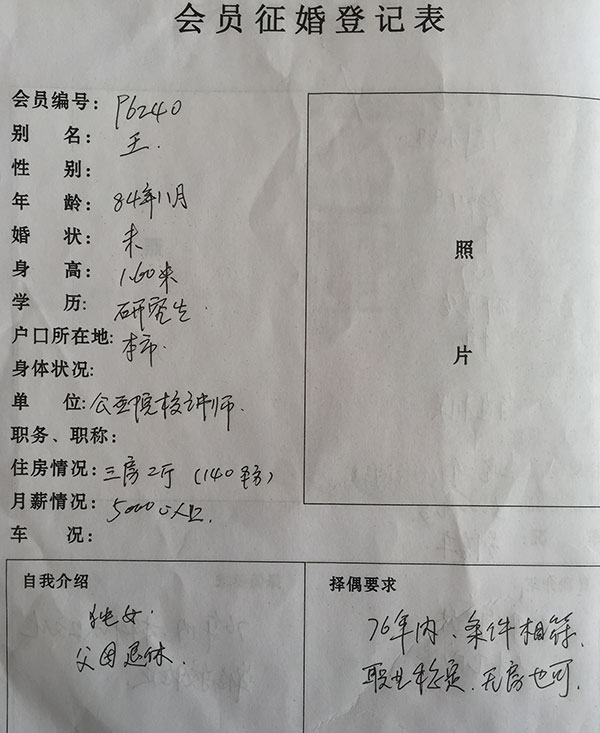 会员征婚登记表
会员编号: P6240
别 名: 王.
性 别:
年 龄: 84年八月
婚 状: 未
身 高: 1.60米
学 历: 研究生.
户口所在地: 本市.
身体状况:
单 位: 公立院校讲师.
职务、职称:
住房情况: 三房2厅 (140平方)
月薪情况: 5000以上.
车 况:
照
片
自我介绍
独女.
父母退休.
择偶要求
76年内、条件相符、
职业稳定.无房也可.